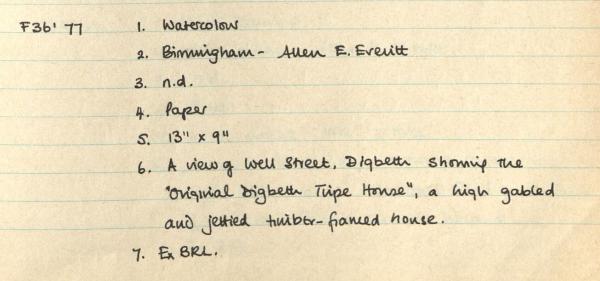 F36' 77 1. Watercolour
2. Birmingham - Allen E. Everitt
3. n.d.
4. Paper
5. 13" x 9"
6. A view of Well Street, Digbeth showing the
"Original Digbeth Tripe House", a high gabled
and jettied timber-framed house.
7. Ex BRL.